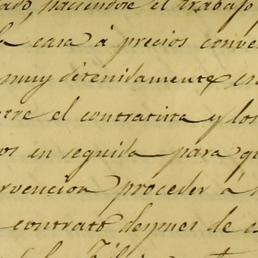 ado, haciendose el trabajo
casa á precios conve
muy detenidamente en
tre el contratista y los
os en seguida para qu
ervencion proceder á
contrato despues de e